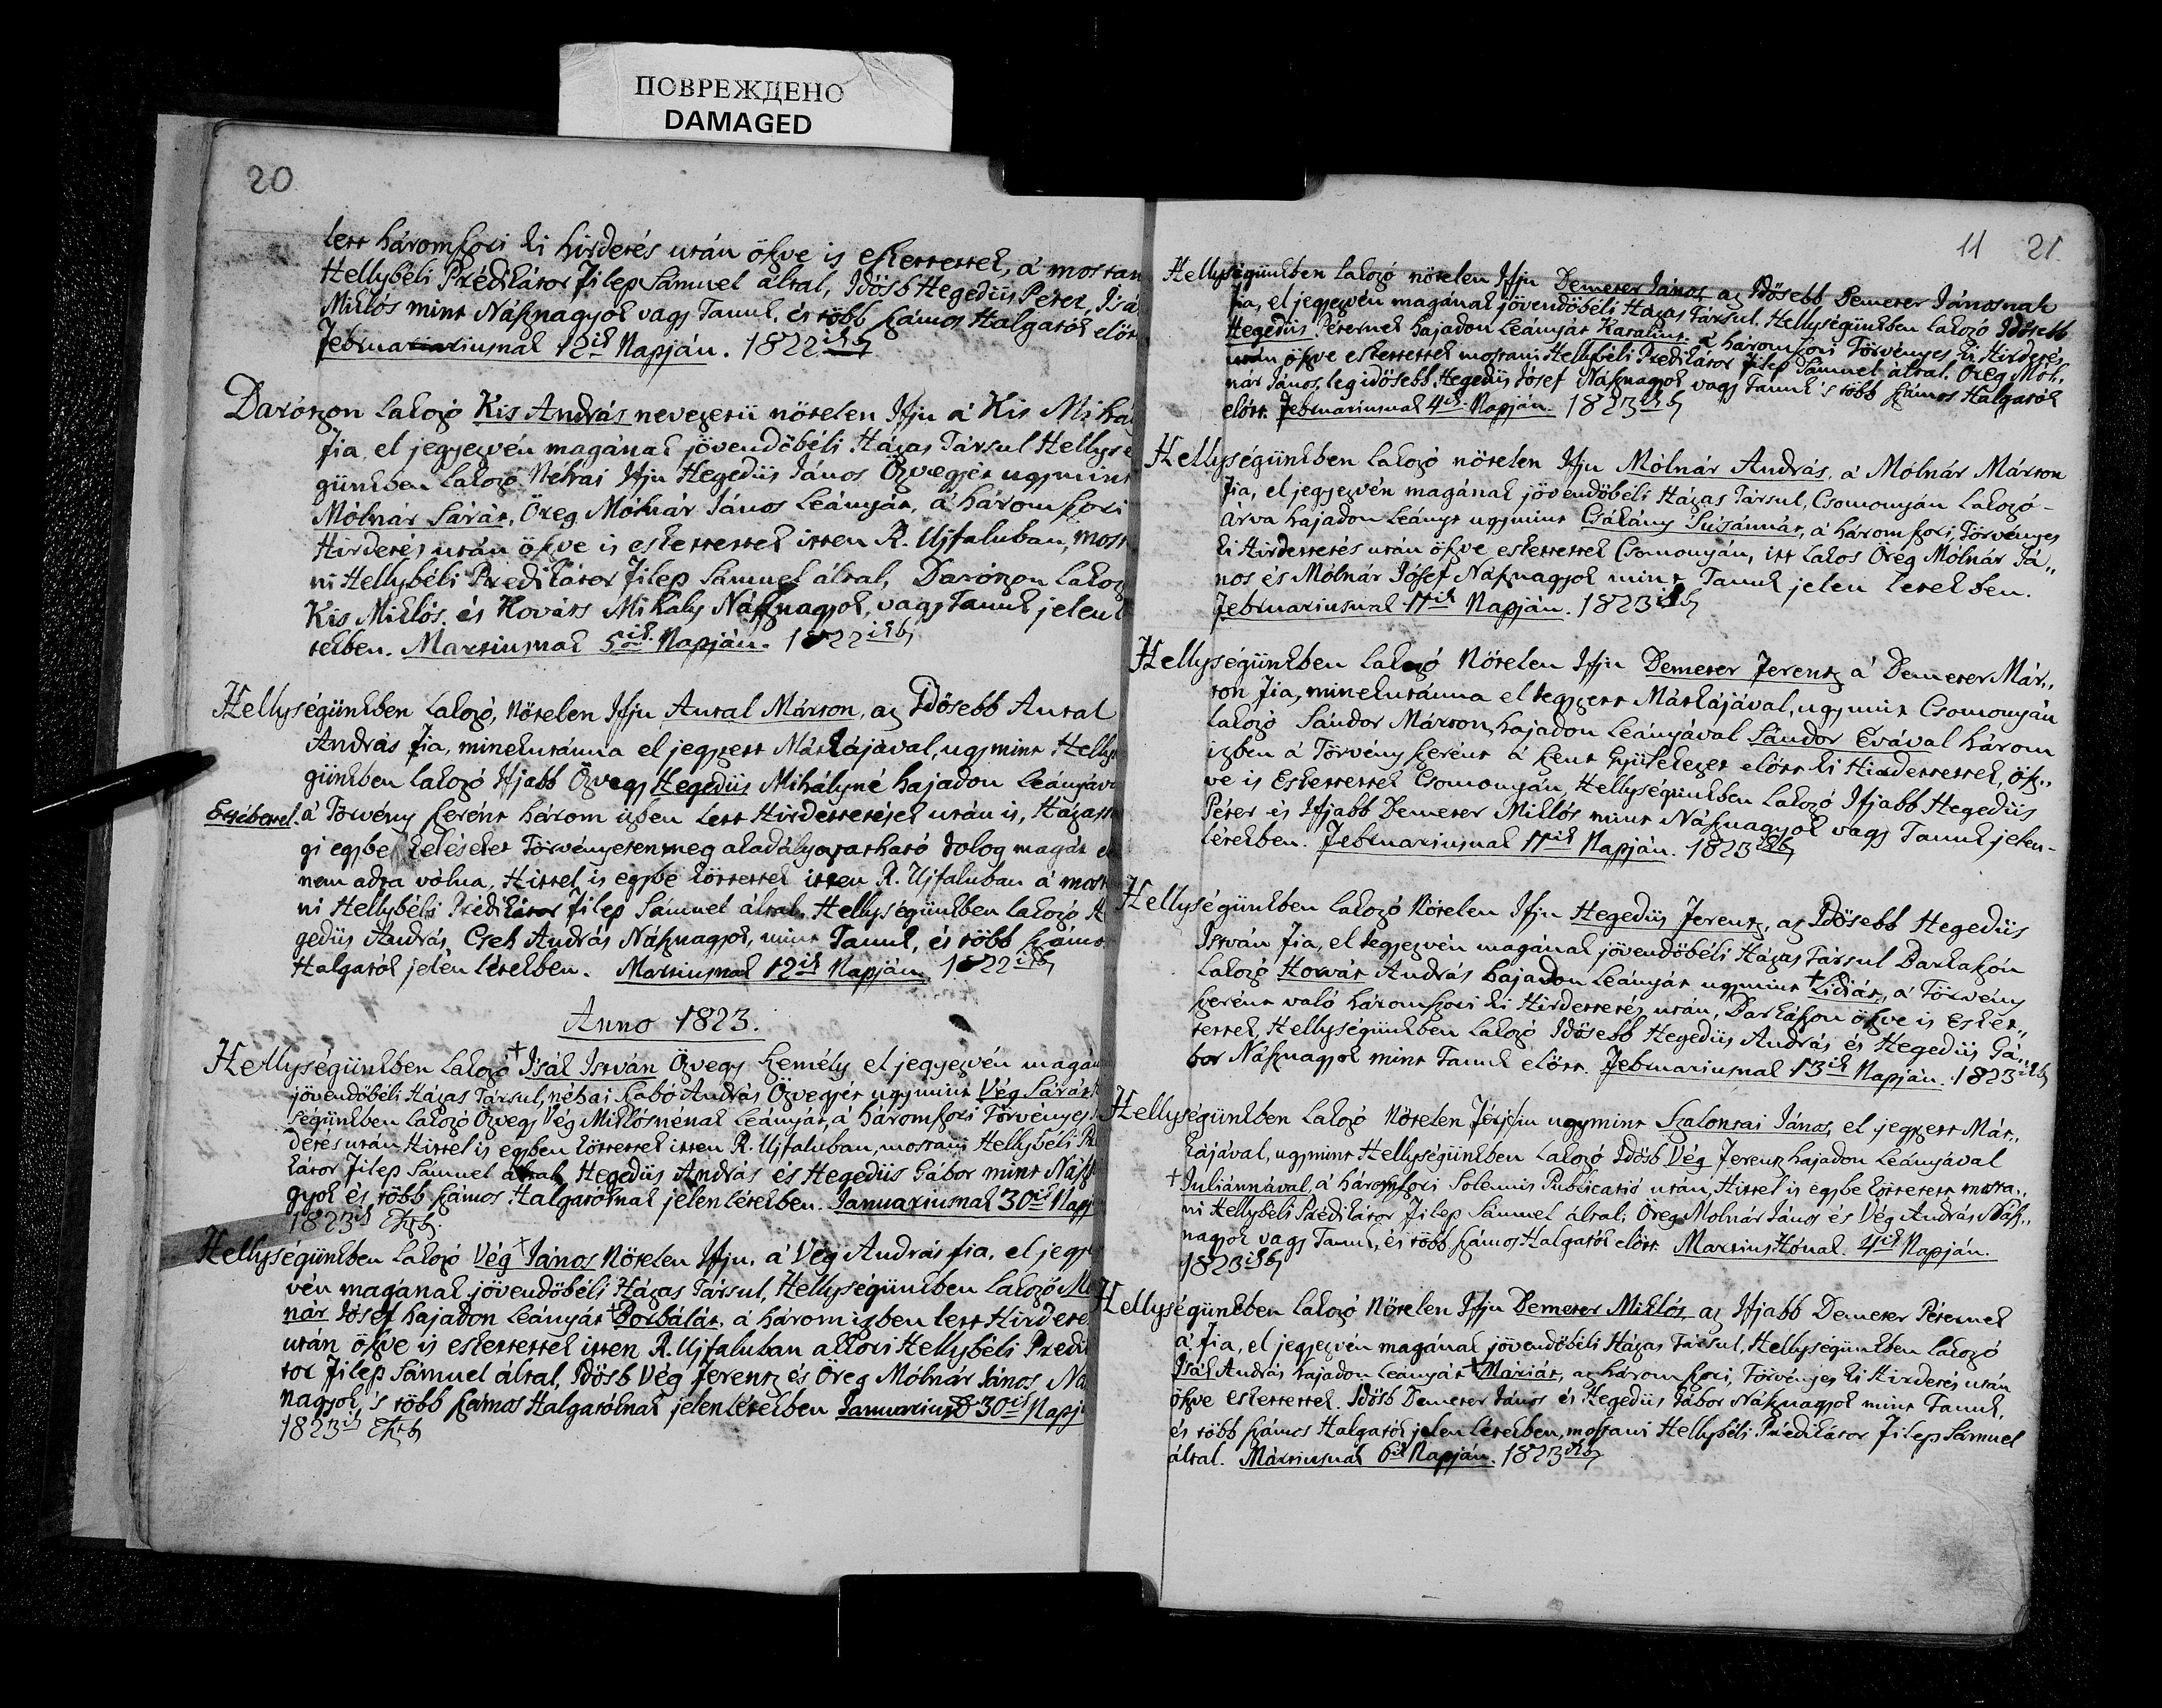 ПОВРЕЖДЕНО
DAMAGED
20
lett háromszori ki hirdetés után öszve is eskettettek, á mostan
Hellybéli Prédikátor Filep Sámuel által, Idösb Hegedüs Péter, Isá
Miklós mint Násznagyok vagy Tanuk, és több számos Halgatók elöt
Februariusnak 12ik Napján. 1822ikb
Darótzon lakozó Kis András nevezetü nötelen Ifju á Kis Mihá
fia, el jegyezvén magának jövendöbéli Házas Társul Hellysé
günkben lakozó Néhai Ifju Hegedüs János Özvegyét ugymint
Mólnár Sárát, Öreg Mólnár János Leányát, á háromszori
Hirdetés után öszve is eskettettek itten R. Ujfaluban, most
ni Hellybéli Predikátor Filep Sámuel által, Darótzon lakoz
Kis Miklós és Kováts Mihály Násznagyok, vagy Tanuk jelen l
tekben. Martiusnak 5ik Napján. 1822ikb
Hellységünkben Lakozó, Nötelen Ifju Antal Márton, az Idösebb Antal
András fia, minekutánna el jegyzett Mátkájával, ugymint Hellys
günkben lakozó Ifjabb Özvegy Hegedüs Mihályné hajadon Leányáva
Ersébettel á Törvény szerént három izben lett Hirdettetések után is, Házass
gi egybe keléseket Törvényeten meg akadályoztatható dolog magát e
nem adta vólna, Hittel is egybe köttettek itten R. Ujfaluban á most
ni Hellybéli Prédikátor Filep Sámuel által. Hellységünkben lakozó H
gedüs András, Cseh András Násznagyok, mint Tanuk, és több számo
Halgatók jelen létekben. Martiusnak 12ik Napján 1822ikb
Anno 1823.
Hellységünkben Lakozó + Isák István Özvegy személy el jegyezvén magán
jövendöbéli Házas Társul, néhai Szabó András Özvegyét ugymint Vég Sárát
ségünkben Lakozó Özvegy Vég Miklósnénak Leányát, á háromszori Törvényes
detés után Hittel is egyben köttettek itten R. Ujfaluban, mostani Hellybéli Pr
kátor Filep Sámuel által, Hegedüs András és Hegedüs Gábor mint Nász
gyok és több számos Halgatóknak jelen létekben. Januariusnak 30ik Napj
1823ik Eszt.
Hellységünkben Lakozó Vég + János Nötelen Ifju, á Vég András fia, el jegy
vén magának jövendöbéli Házas Társul, Hellységünkben Lakozó Mó
nár Jósef hajadon Leányát + Borbálát, á három izben lett Hirdeté
után öszve is eskettettek itten R. Ujfaluban akkori Hellybéli Predi
tor Filep Sámuel által, Idösb Vég Ferentz és Öreg Mólnár János Ná
nagyok, 's több számos Halgatóknak jelen létekben Januarius 30ik Napj
1823ik Eszt.
11 21.
Hellységünkben lakozó nötelen Ifju Demeter János az Idösebb Demeter Jánosnak
fia, el jegyezvén magának jövendöbéli Házas Társul. Hellységünkben lakozó Idösebb
Hegedüs Péternek hajadon Leányát Katalint, á háromszori Törvényes ki Hirdetés
után öszve eskettettek mostani Hellybéli Prédikátor Filep Sámuel által. Öreg Mól„
nár János, leg idösebb Hegedüs Jósef Násznagyok vagy Tanuk 's több számos Halgatók
elött. Februariusnak 4ik Napján. 1823ikb
Hellységünkben lakozó nötelen Ifju Mólnár András, á Mólnár Márton
fia, el jegyezvén magának jövendöbéli Házas Társul, Csomonyán lakozó-
árva hajadon Leányt ugymint Csákány Susánnát, á háromszori, Törvényes
ki Hirdettetés után öszve eskettettek Csomonyán, itt lakos Öreg Mólnár Já„
nos és Mólnár Jósef Násznagyok mint Tanuk jelen létekben.
Februariusnak 17ik Napján. 1823ikb
Hellységünkben lakozó Nötelen Ifju Demeter Ferentz á Demeter Már„
ton fia, minekutánna el jegyzett Mátkájával, ugymint Csomonyán
lakozó Sándor Márton, hajadon Leányával Sándor Évával három
izben á Törvény szerént á szent Gyülekezet elött ki Hirdettettek, ösz„
ve is Eskettettek Csomonyán, Hellységünkben Lakozó Ifjabb Hegedüs
Péter és Ifjabb Demeter Miklós mint Násznagyok vagy Tanuk jelen-
létekben. Februariusnak 17ik Napján. 1823ikb
Hellységünkben lakozó Nötelen Ifju Hegedüs Ferentz, az Idösebb Hegedüs
István fia, el jegyezvén magának jövendöbéli Házas Társul Barkaszón
Lakozó Horvát András hajadon Leányát ugymint + Lidiát, á Törvény
szerént való háromszori ki Hirdettetés, után, Barkászon öszve is Esket„
tettek, Hellységünkben Lakozó Idösebb Hegedüs András és Hegedüs Gá„
bor Násznagyok mint Tanuk elött. Februariusnak 13ik Napján. 1823ikb
Hellységünkben Lakozó Nötelen Férjfiu ugymint Szalontai János, el jegyzett Mát„
kájával, ugymint Hellységünkben Lakozó Idösb Vég Ferentz hajadon Leányával
+ Juliánnával, á háromszori Solennis Publicatió után, Hittel is egybe köttetett mosta„
ni Hellybéli Prédikátor Filep Sámuel által. Öreg Molnár János és Vég András Nász„
nagyok vagy Tanuk, és több számos Halgatók elött. Martius Hónak. 4ik Napján.
1823ikb
Hellységünkben lakozó Nötelen Ifju Demeter Miklós, az Ifjabb Demeter Péternek
á fia, el jegyezvén magának jövendöbéli Házas Társul, Hellységünkben lakozó
Isák András hajadon Leányát + Máriát, az háromszori, Törvényes ki Hirdetés után
öszve eskettettek. Idösb Demeter János és Hegedüs Gábor Násznagyok mint Tanuk,
és több számos Halgatók jelen létekben, mostani Hellybéli Prédikátor Filep Sámuel
által. Mártiusnak 6ik Napján. 1823ikb